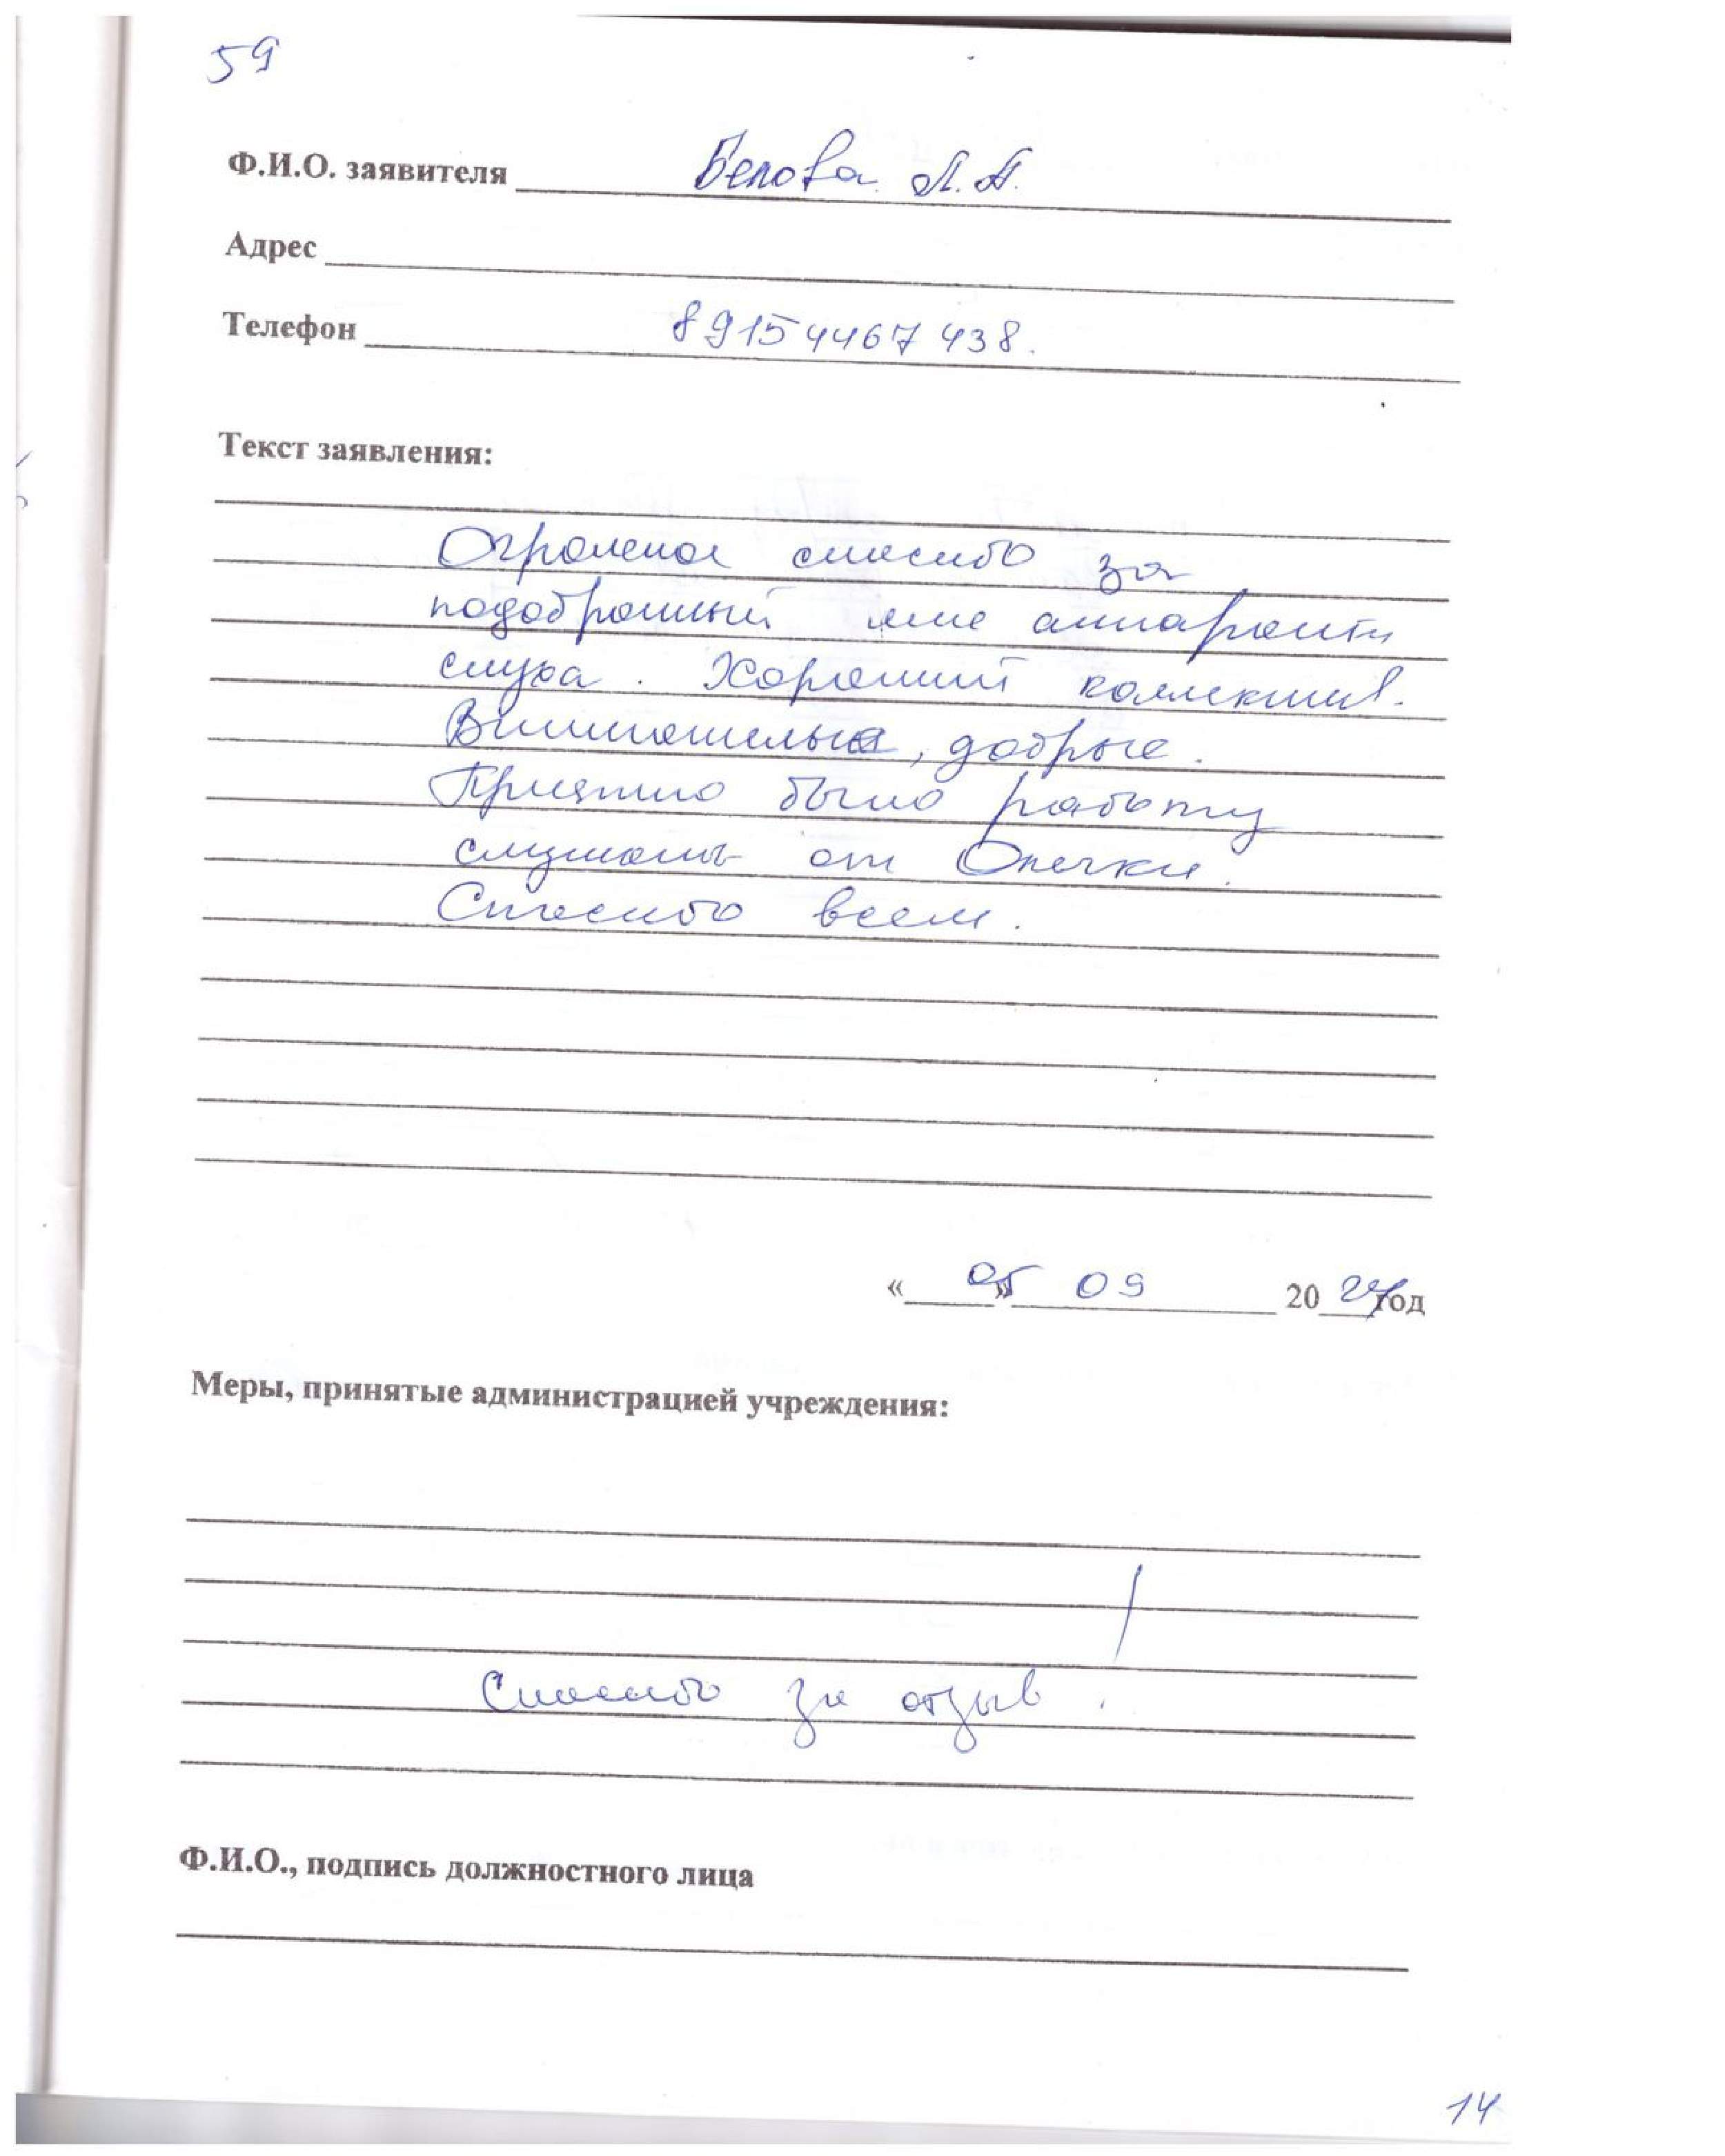 59
Ф.И.О. заявителя Белова Л.А.
Адрес
Телефон 89154467438.
Текст заявления:
Огромное спасибо за
подобранный мне аппараты
слуха. Хороший коллектив.
Внимательные, добрые.
Приятно было работу
слушать от
Спасибо всем.
« 05 » 09 2024 год
Меры, принятые администрацией учреждения:
Спасибо за отзыв!
Ф.И.О., подпись должностного лица
14